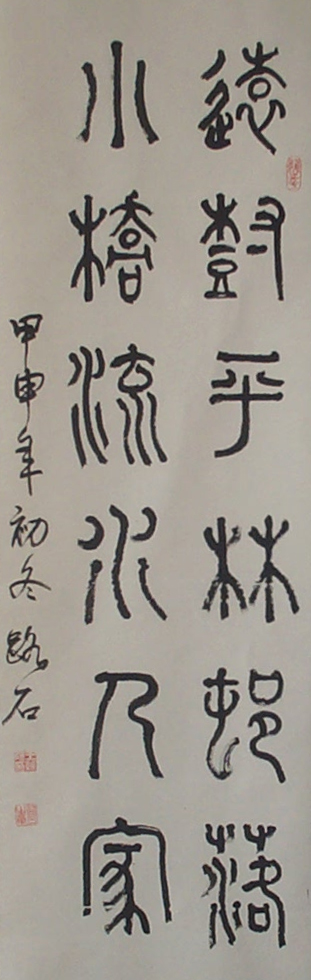 遠樹平林邨落
小橋流水人家
甲申年初冬路石